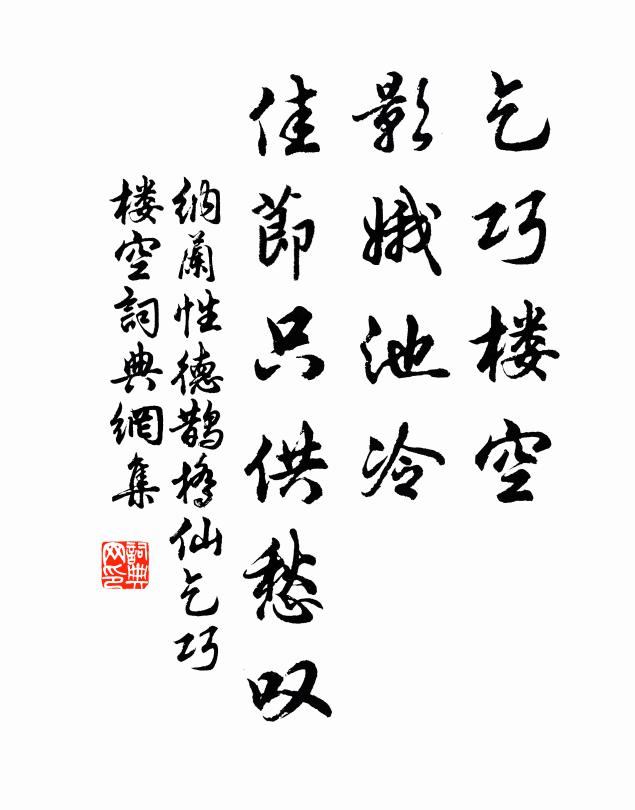 乞巧楼空
影娥池冷
佳節只供愁叹
纳蘭性德鹊橋仙乞巧
楼空詞典網集
詞典网印